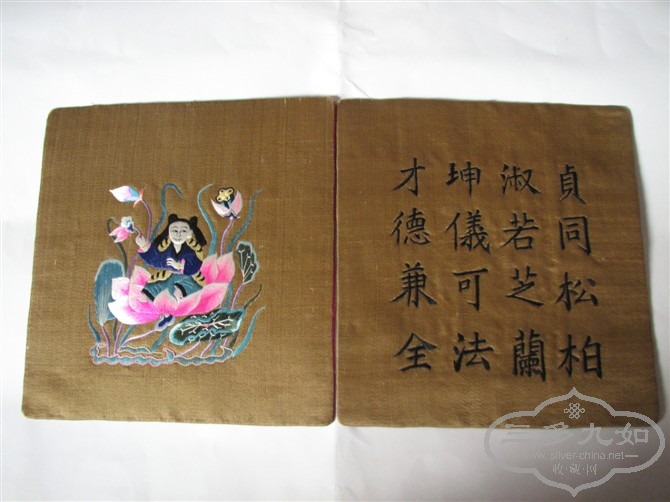 貞同松柏
淑若芝蘭
坤儀可法
才德兼全
三多九如
www.silver-china.net
收藏网